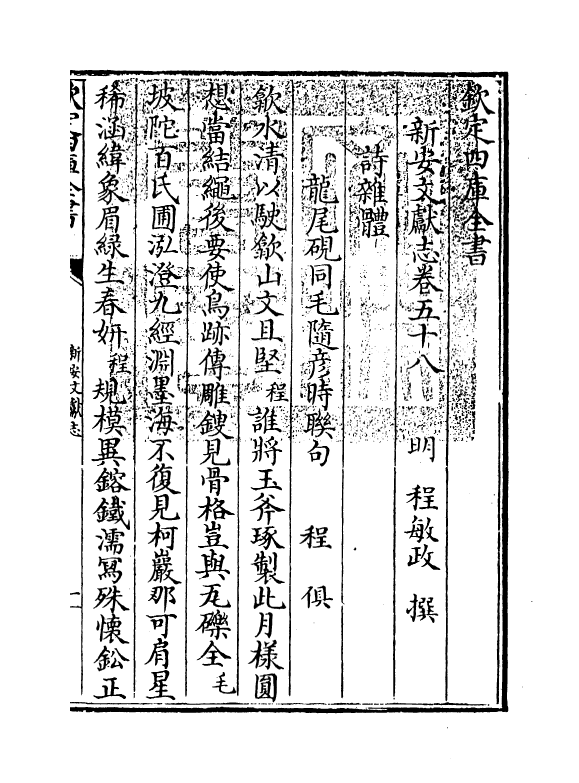 欽定四庫全書
新安文獻志卷五十八　明　程敏政　撰
詩雜體
龍尾硯同毛隨彦時聯句　程　俱
歙水清以駛歙山文且堅程誰將玉斧琢製此月様圓
想當結繩後要使鳥跡傳雕鎪見骨格豈與瓦礫全毛
坡陀百氏圃泓澄九經淵墨海不復見柯巖那可肩星
稀涵緯象眉緑生春妍程規模異鎔鐵濡冩殊懷鈆正
欽定四庫全書
新安文獻志